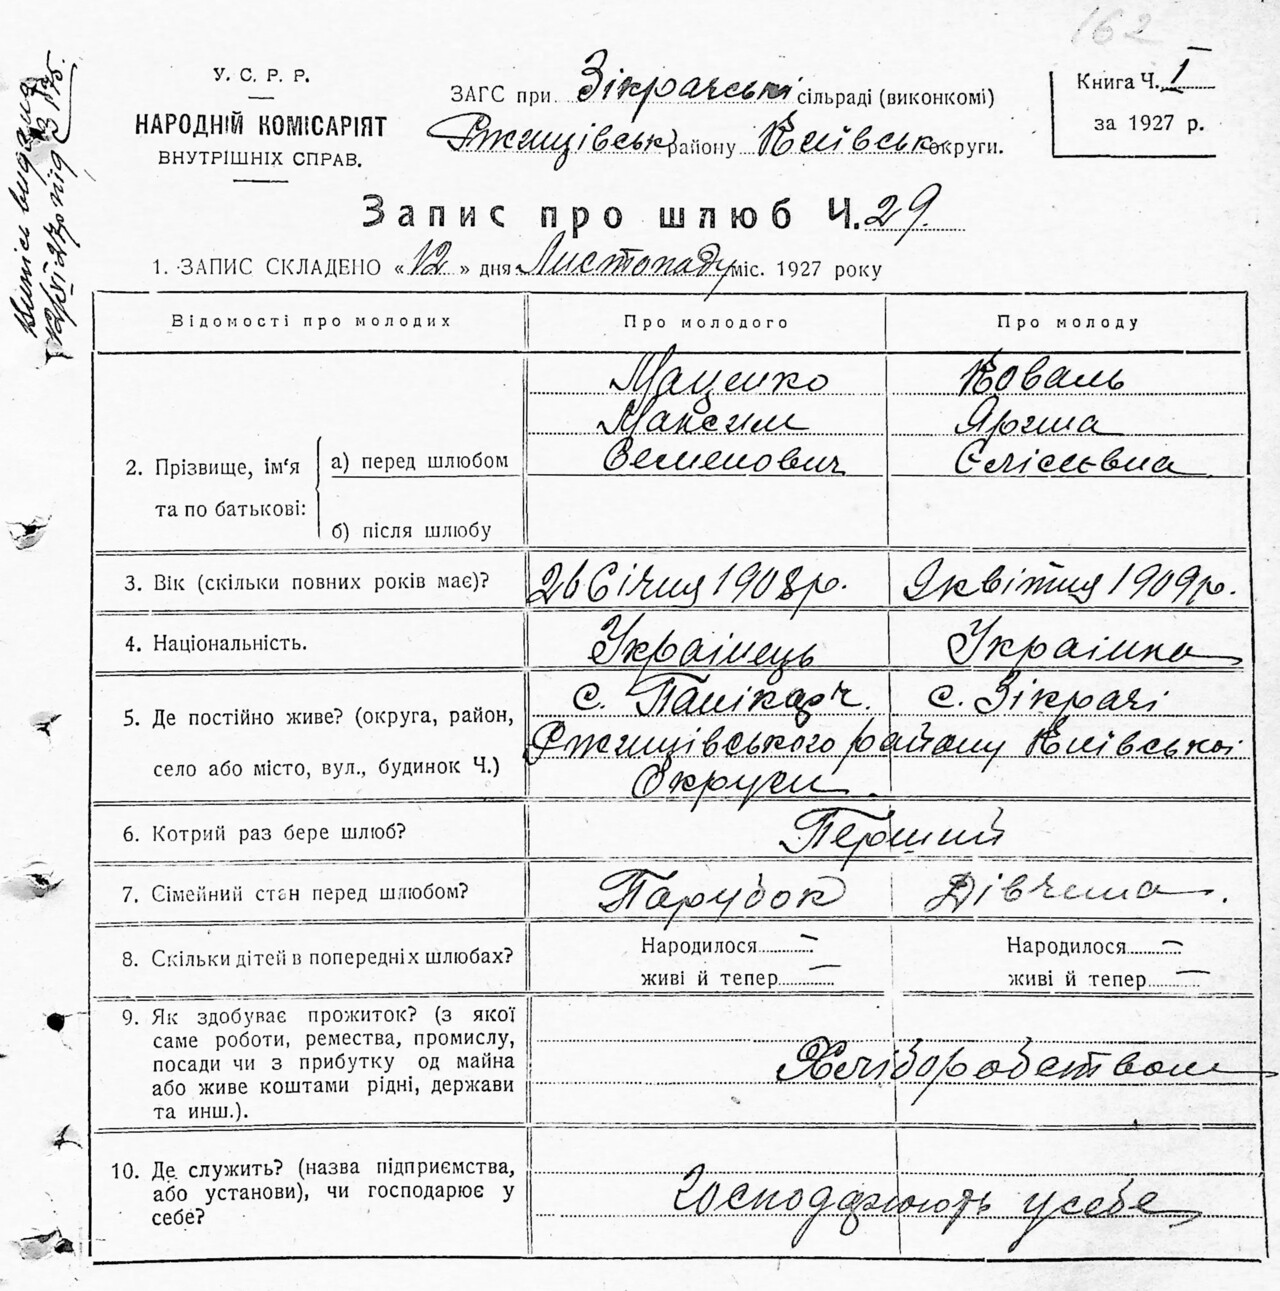 162
У. С. Р. Р.
НАРОДНІЙ КОМІСАРІЯТ
ВНУТРІШНІХ СПРАВ.
ЗАГС при Зікрачській сільраді (виконкомі)
Ржищівськ району Київськ округи.
Книга Ч. I
за 1927 р.
Запис про шлюб Ч. 29.
1. ЗАПИС СКЛАДЕНО « 12 » дня Листопаду міс. 1927 року
Відомості про молодих Про молодого Про молоду
2. Прізвище, ім'я та по батькові:
а) перед шлюбом
б) після шлюбу
Маценко Коваль
Максим Ярина
Семенович Єлісєєвна
3. Вік (скільки повних років має)? 26 Січня 1908 р. 9 квітня 1909 р.
4. Національність. Українець Українка
5. Де постійно живе? (округа, район, с. Панікарч. с. Зікрачі
село або місто, вул., будинок Ч.) Ржищівського району Київської
Округи.
6. Котрий раз бере шлюб? Перший
7. Сімейний стан перед шлюбом? Парубок Дівчина.
8. Скільки дітей в попередніх шлюбах? Народилося — Народилося —
живі й тепер — живі й тепер —
9. Як здобуває прожиток? (з якої
саме роботи, ремества, промислу,
посади чи з прибутку од майна Хліборобством
або живе коштами рідні, держави
та инш.).
10. Де служить? (назва підприємства,
або установи), чи господарює у Господарюють у себе
себе?